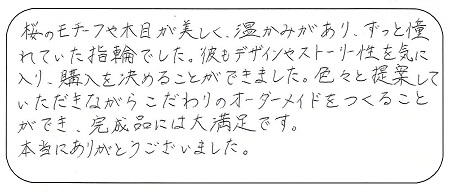 桜のモチーフや木目が美しく、温かみがあり、ずっと憧
れていた指輪でした。彼もデザインやストーリー性を気に
入り、購入を決めることができました。色々と提案して
いただきながらこだわりのオーダーメイドをつくること
ができ、完成品には大満足です。
本当にありがとうございました。